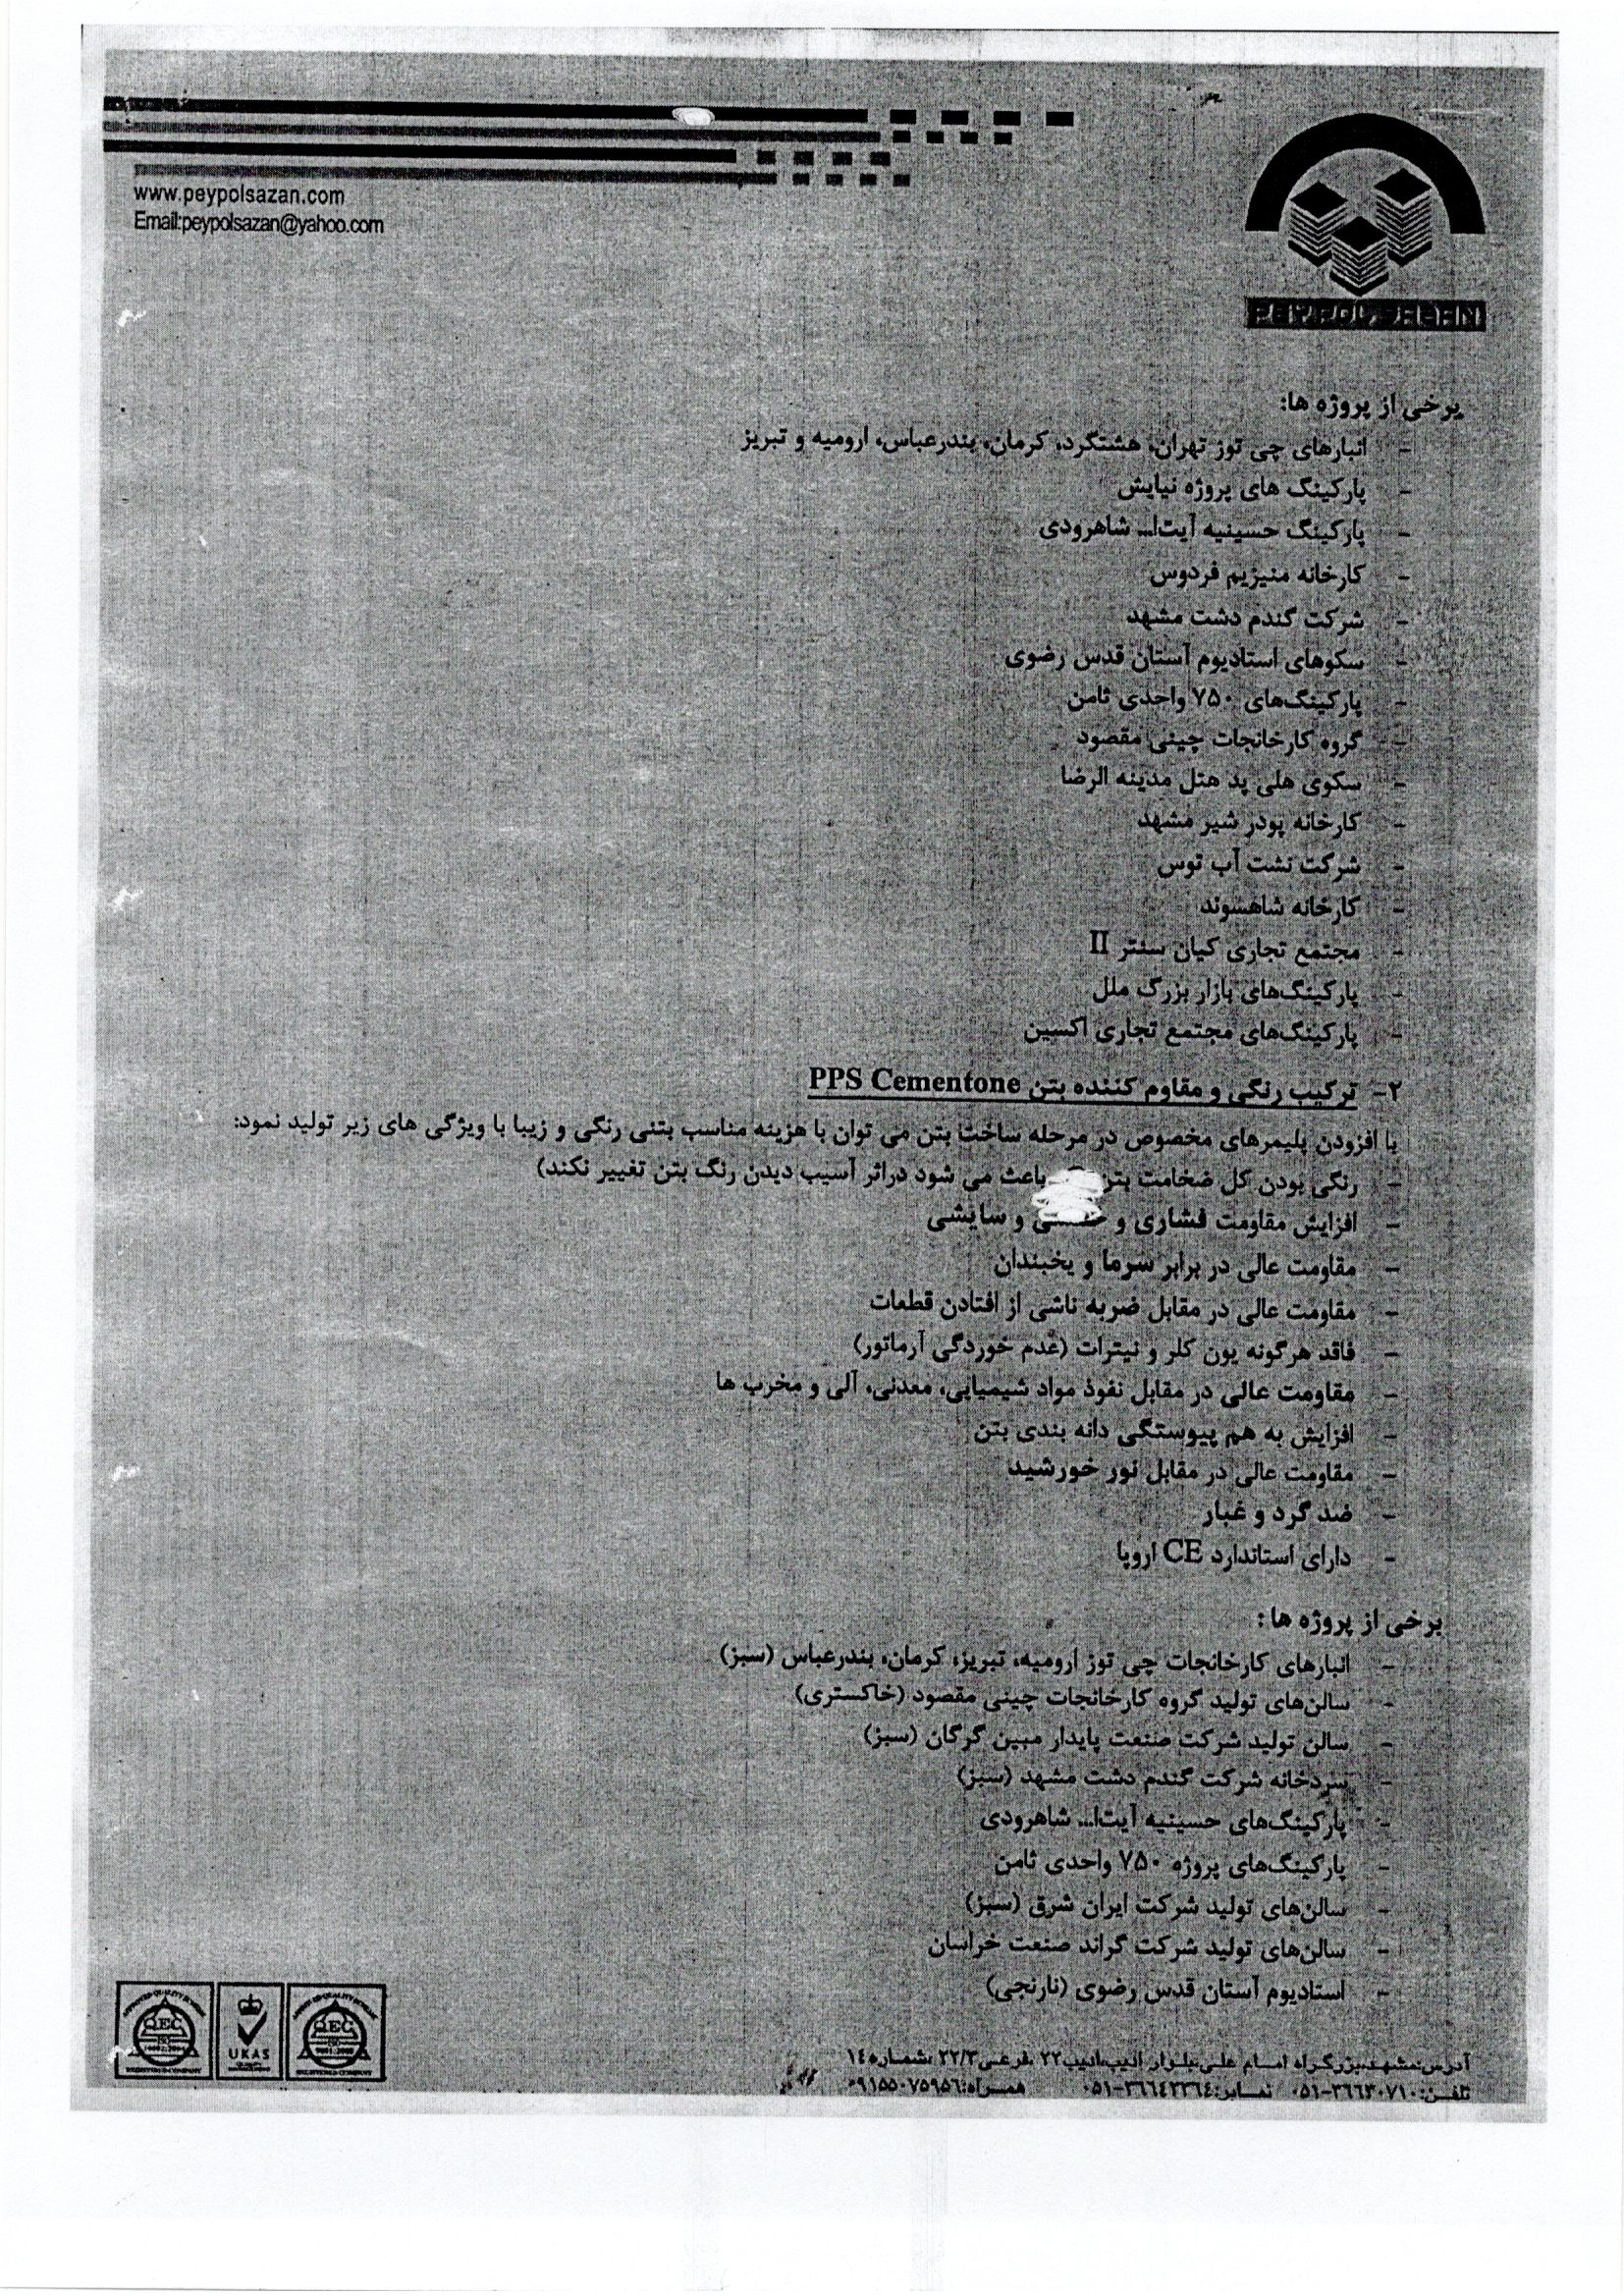 www.peypolsazan.com
Email:peypolsazan@yahoo.com
PEYPOL SAZAN
برخی از پروژه ها:
- انبارهای چی توز تهران، هشتگرد، کرمان، بندرعباس، ارومیه و تبریز
- پارکینگ های پروژه نیایش
- پارکینگ حسینیه آیت‌ا... شاهرودی
- کارخانه منیزیم فردوس
- شرکت گندم دشت مشهد
- سکوهای استادیوم آستان قدس رضوی
- پارکینگ‌های ۷۵۰ واحدی ثامن
- گروه کارخانجات چینی مقصود
- سکوی هلی پد هتل مدینه الرضا
- کارخانه پودر شیر مشهد
- شرکت نشت آب توس
- کارخانه شاهسوند
- مجتمع تجاری کیان سنتر II
- پارکینگ‌های بازار بزرگ ملل
- پارکینگ‌های مجتمع تجاری اکسین
۲- ترکیب رنگی و مقاوم کننده بتن PPS Cementone
با افزودن پلیمرهای مخصوص در مرحله ساخت بتن می توان با هزینه مناسب بتنی رنگی و زیبا با ویژگی های زیر تولید نمود:
- رنگی بودن کل ضخامت بتن باعث می شود دراثر آسیب دیدن رنگ بتن تغییر نکند)
- افزایش مقاومت فشاری و و سایشی
- مقاومت عالی در برابر سرما و یخبندان
- مقاومت عالی در مقابل ضربه ناشی از افتادن قطعات
- فاقد هرگونه یون کلر و نیترات (عدم خوردگی آرماتور)
- مقاومت عالی در مقابل نفوذ مواد شیمیایی، معدنی، آلی و مخرب ها
- افزایش به هم پیوستگی دانه بندی بتن
- مقاومت عالی در مقابل نور خورشید
- ضد گرد و غبار
- دارای استاندارد CE اروپا
برخی از پروژه ها :
- انبارهای کارخانجات چی توز ارومیه، تبریز، کرمان، بندرعباس (سبز)
- سالن‌های تولید گروه کارخانجات چینی مقصود (خاکستری)
- سالن تولید شرکت صنعت پایدار مبین گرگان (سبز)
- سردخانه شرکت گندم دشت مشهد (سبز)
- پارکینگ‌های حسینیه آیت‌ا... شاهرودی
- پارکینگ‌های پروژه ۷۵۰ واحدی ثامن
- سالن‌های تولید شرکت ایران شرق (سبز)
- سالن‌های تولید شرکت گراند صنعت خراسان
- استادیوم آستان قدس رضوی (نارنجی)
QEC
UKAS
QEC
آدرس:مشهد،بزرگراه امام علی،بلوار ادیب،ادیب۲۲ ،فرعی۲۲/۳ ،شماره۱٤
تلفن:۳٦٦۳۰۷۱۰-۰۵۱ نمابر:۳٦٦٤۲۳٦٤-۰۵۱ همراه:۰۹۱۵۵۰۷۵۹۵٦